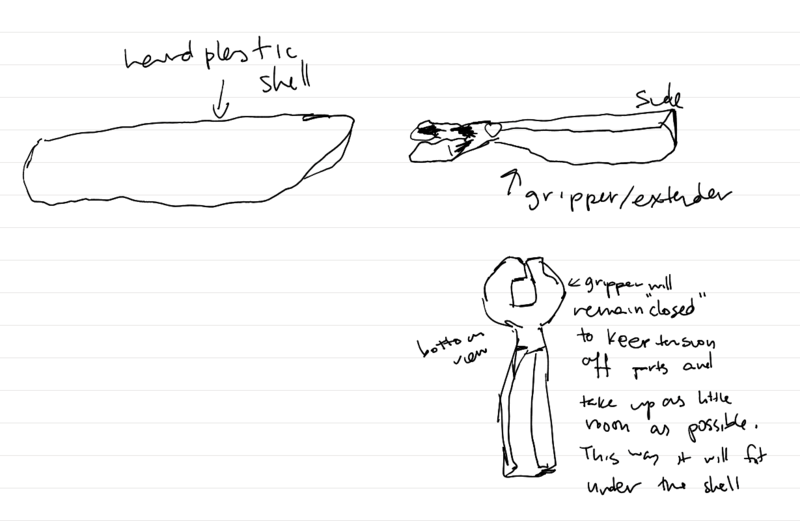 hard plastic
shell
side
gripper/extender
bottom
view
gripper will
remain "closed"
to keep tension
off parts and
take up as little
room as possible.
This way it will fit
under the shell